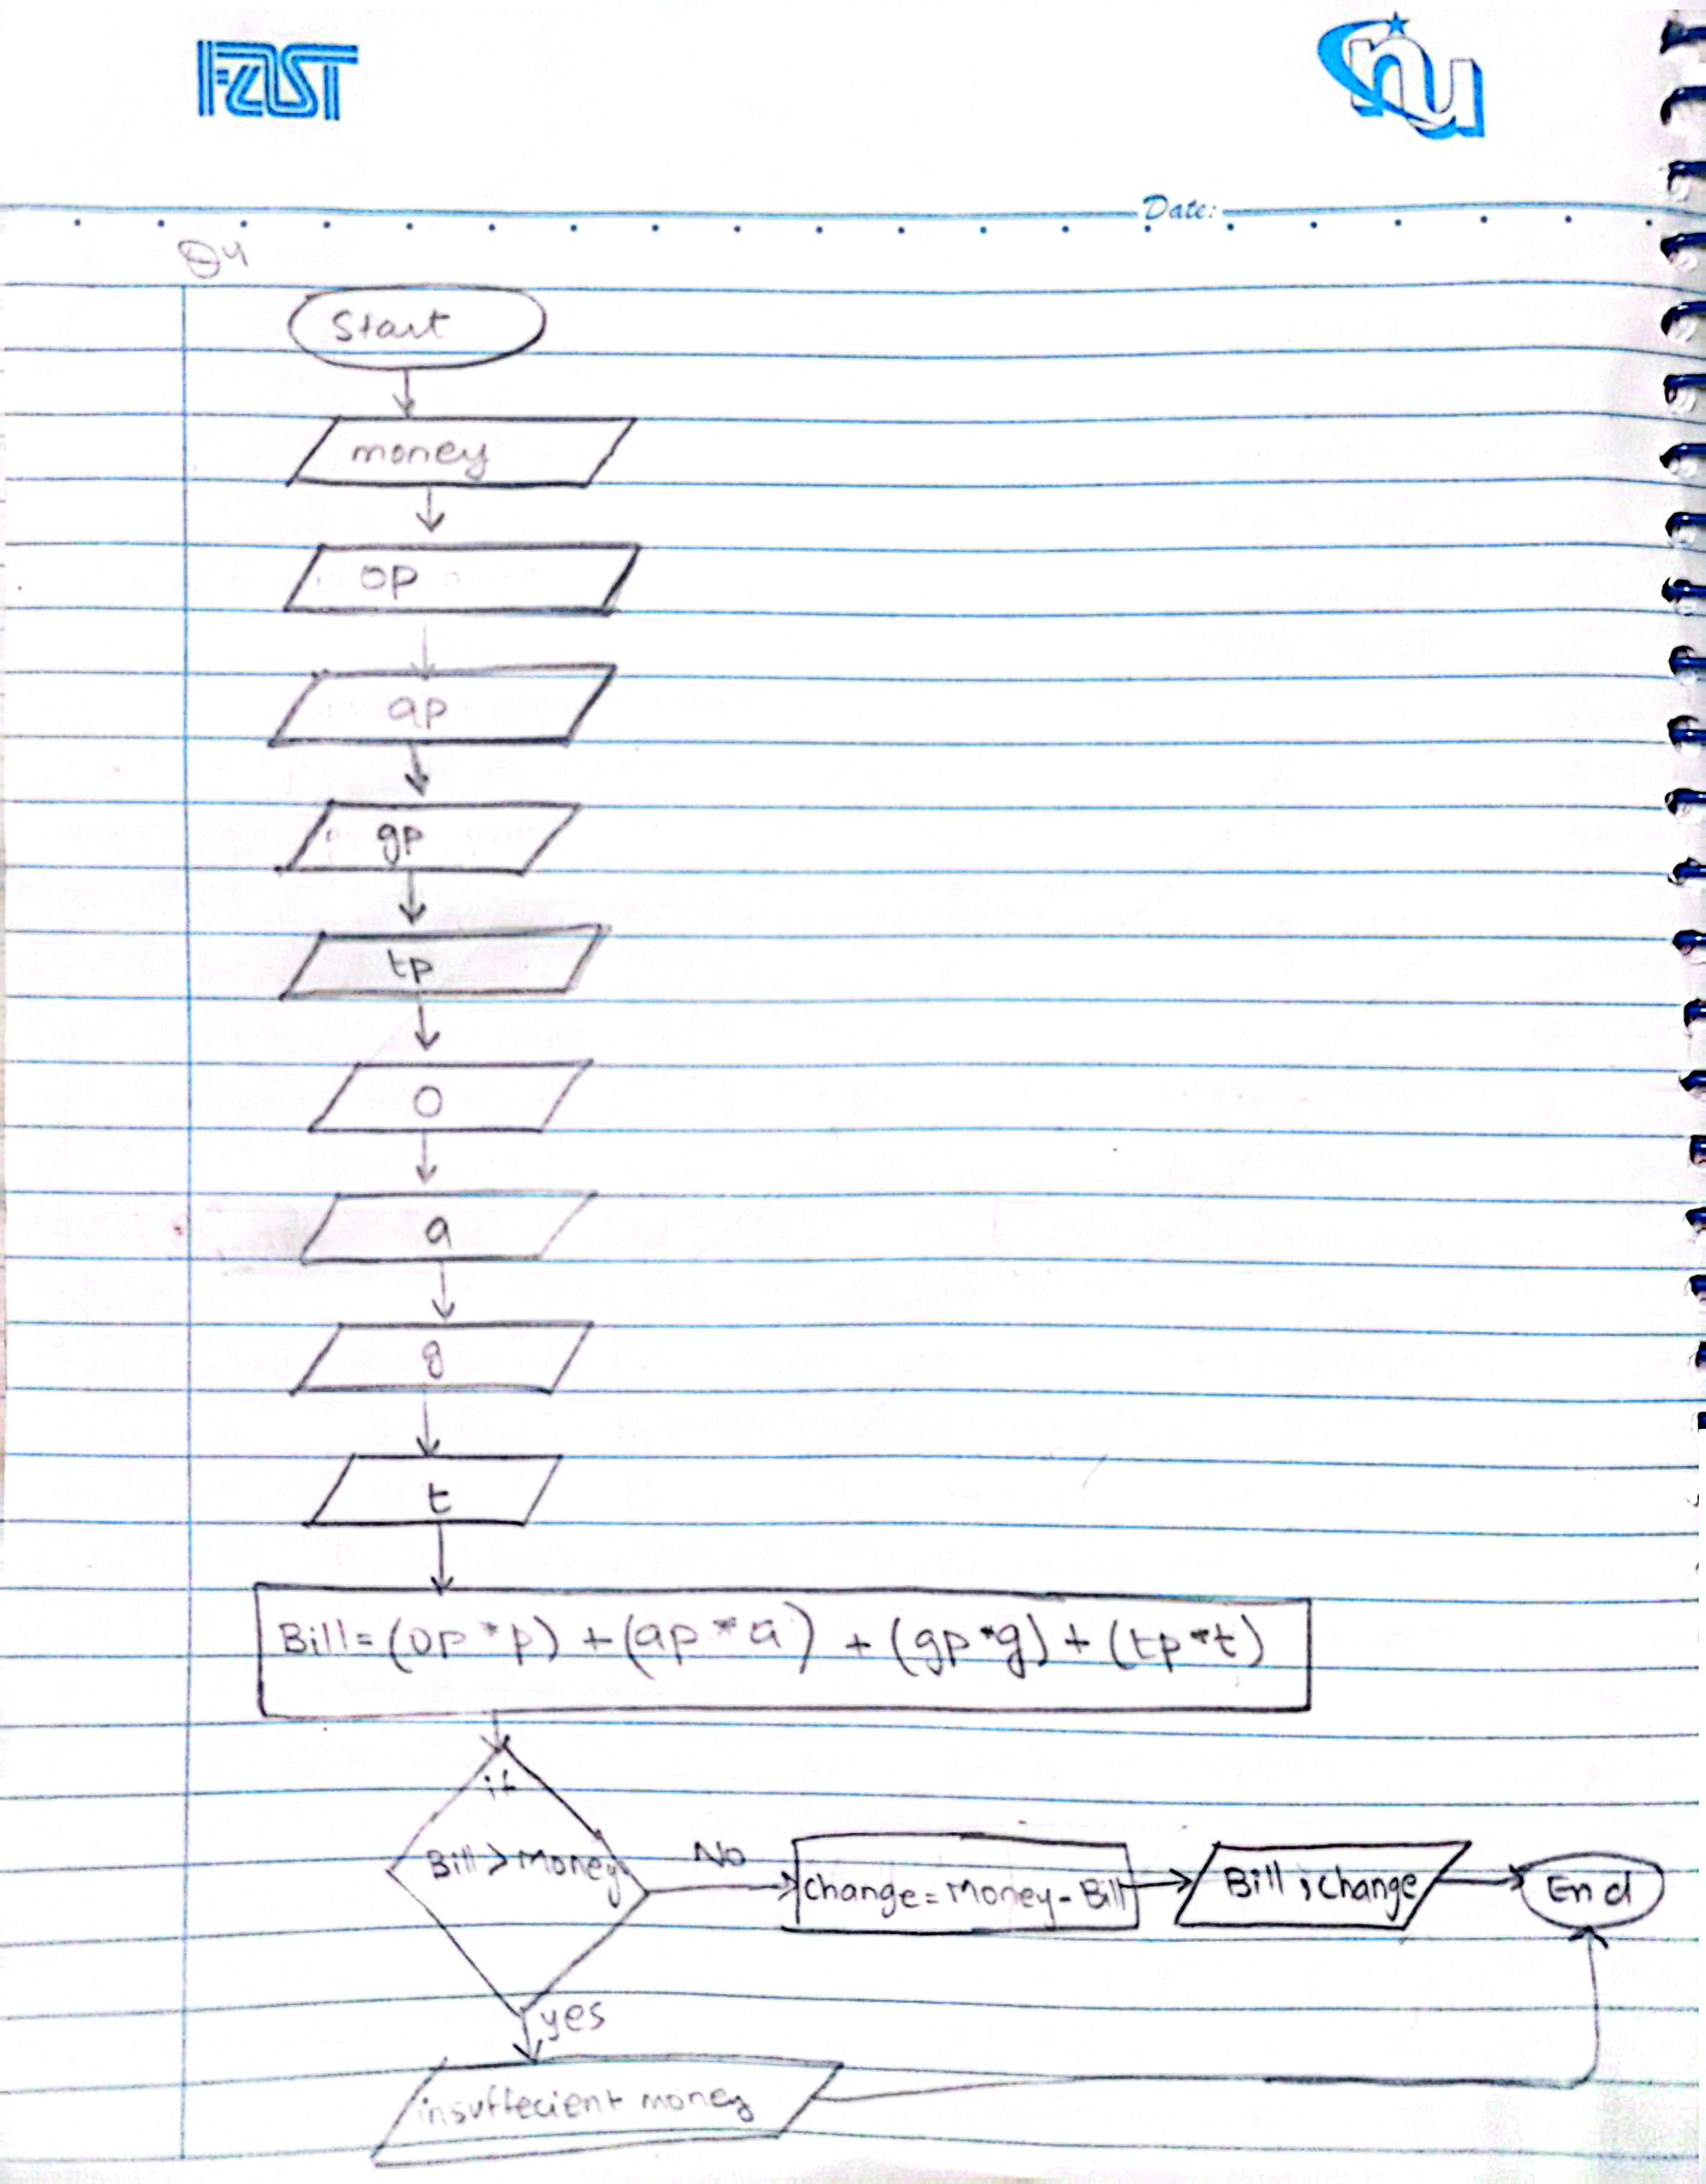 FAST
nu
Date:
Q4
Start
money
op
ap
gp
tp
o
a
g
t
Bill = (op * p) + (ap * a) + (gp * g) + (tp * t)
if
Bill > Money
No
Change = Money - Bill
Bill, Change
End
yes
insuffecient money